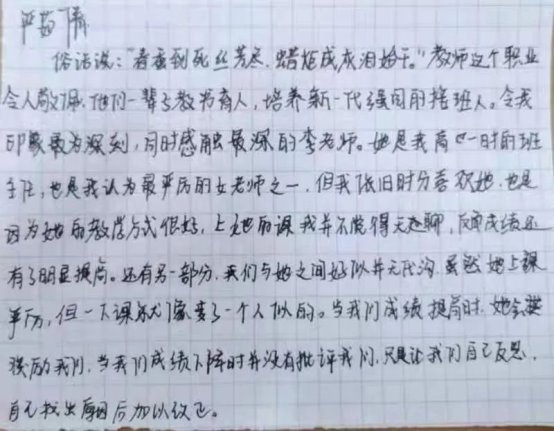 俗话说："春蚕到死丝方尽,蜡炬成灰泪始干。"教师这个职业
令人敬佩,他们一辈子教书育人,培养新一代强国的接班人。令我
印象最为深刻,同时感触最深的李老师。她是我高一时的班
主任,也是我认为最严厉的女老师之一,但我依旧时分喜欢她,也是
因为她的教学方式很好,上她的课我并不觉得无趣聊,反而成绩还
有了明显提高。还有另一部分,我们与她之间好似并无代沟,虽然她上课
严厉,但一下课就像变了一个人似的。当我们成绩提高时,她会
奖励我们,当我们成绩下降时并没有批评我们,只是让我们自己反思,
自己找出原因后加以改正。